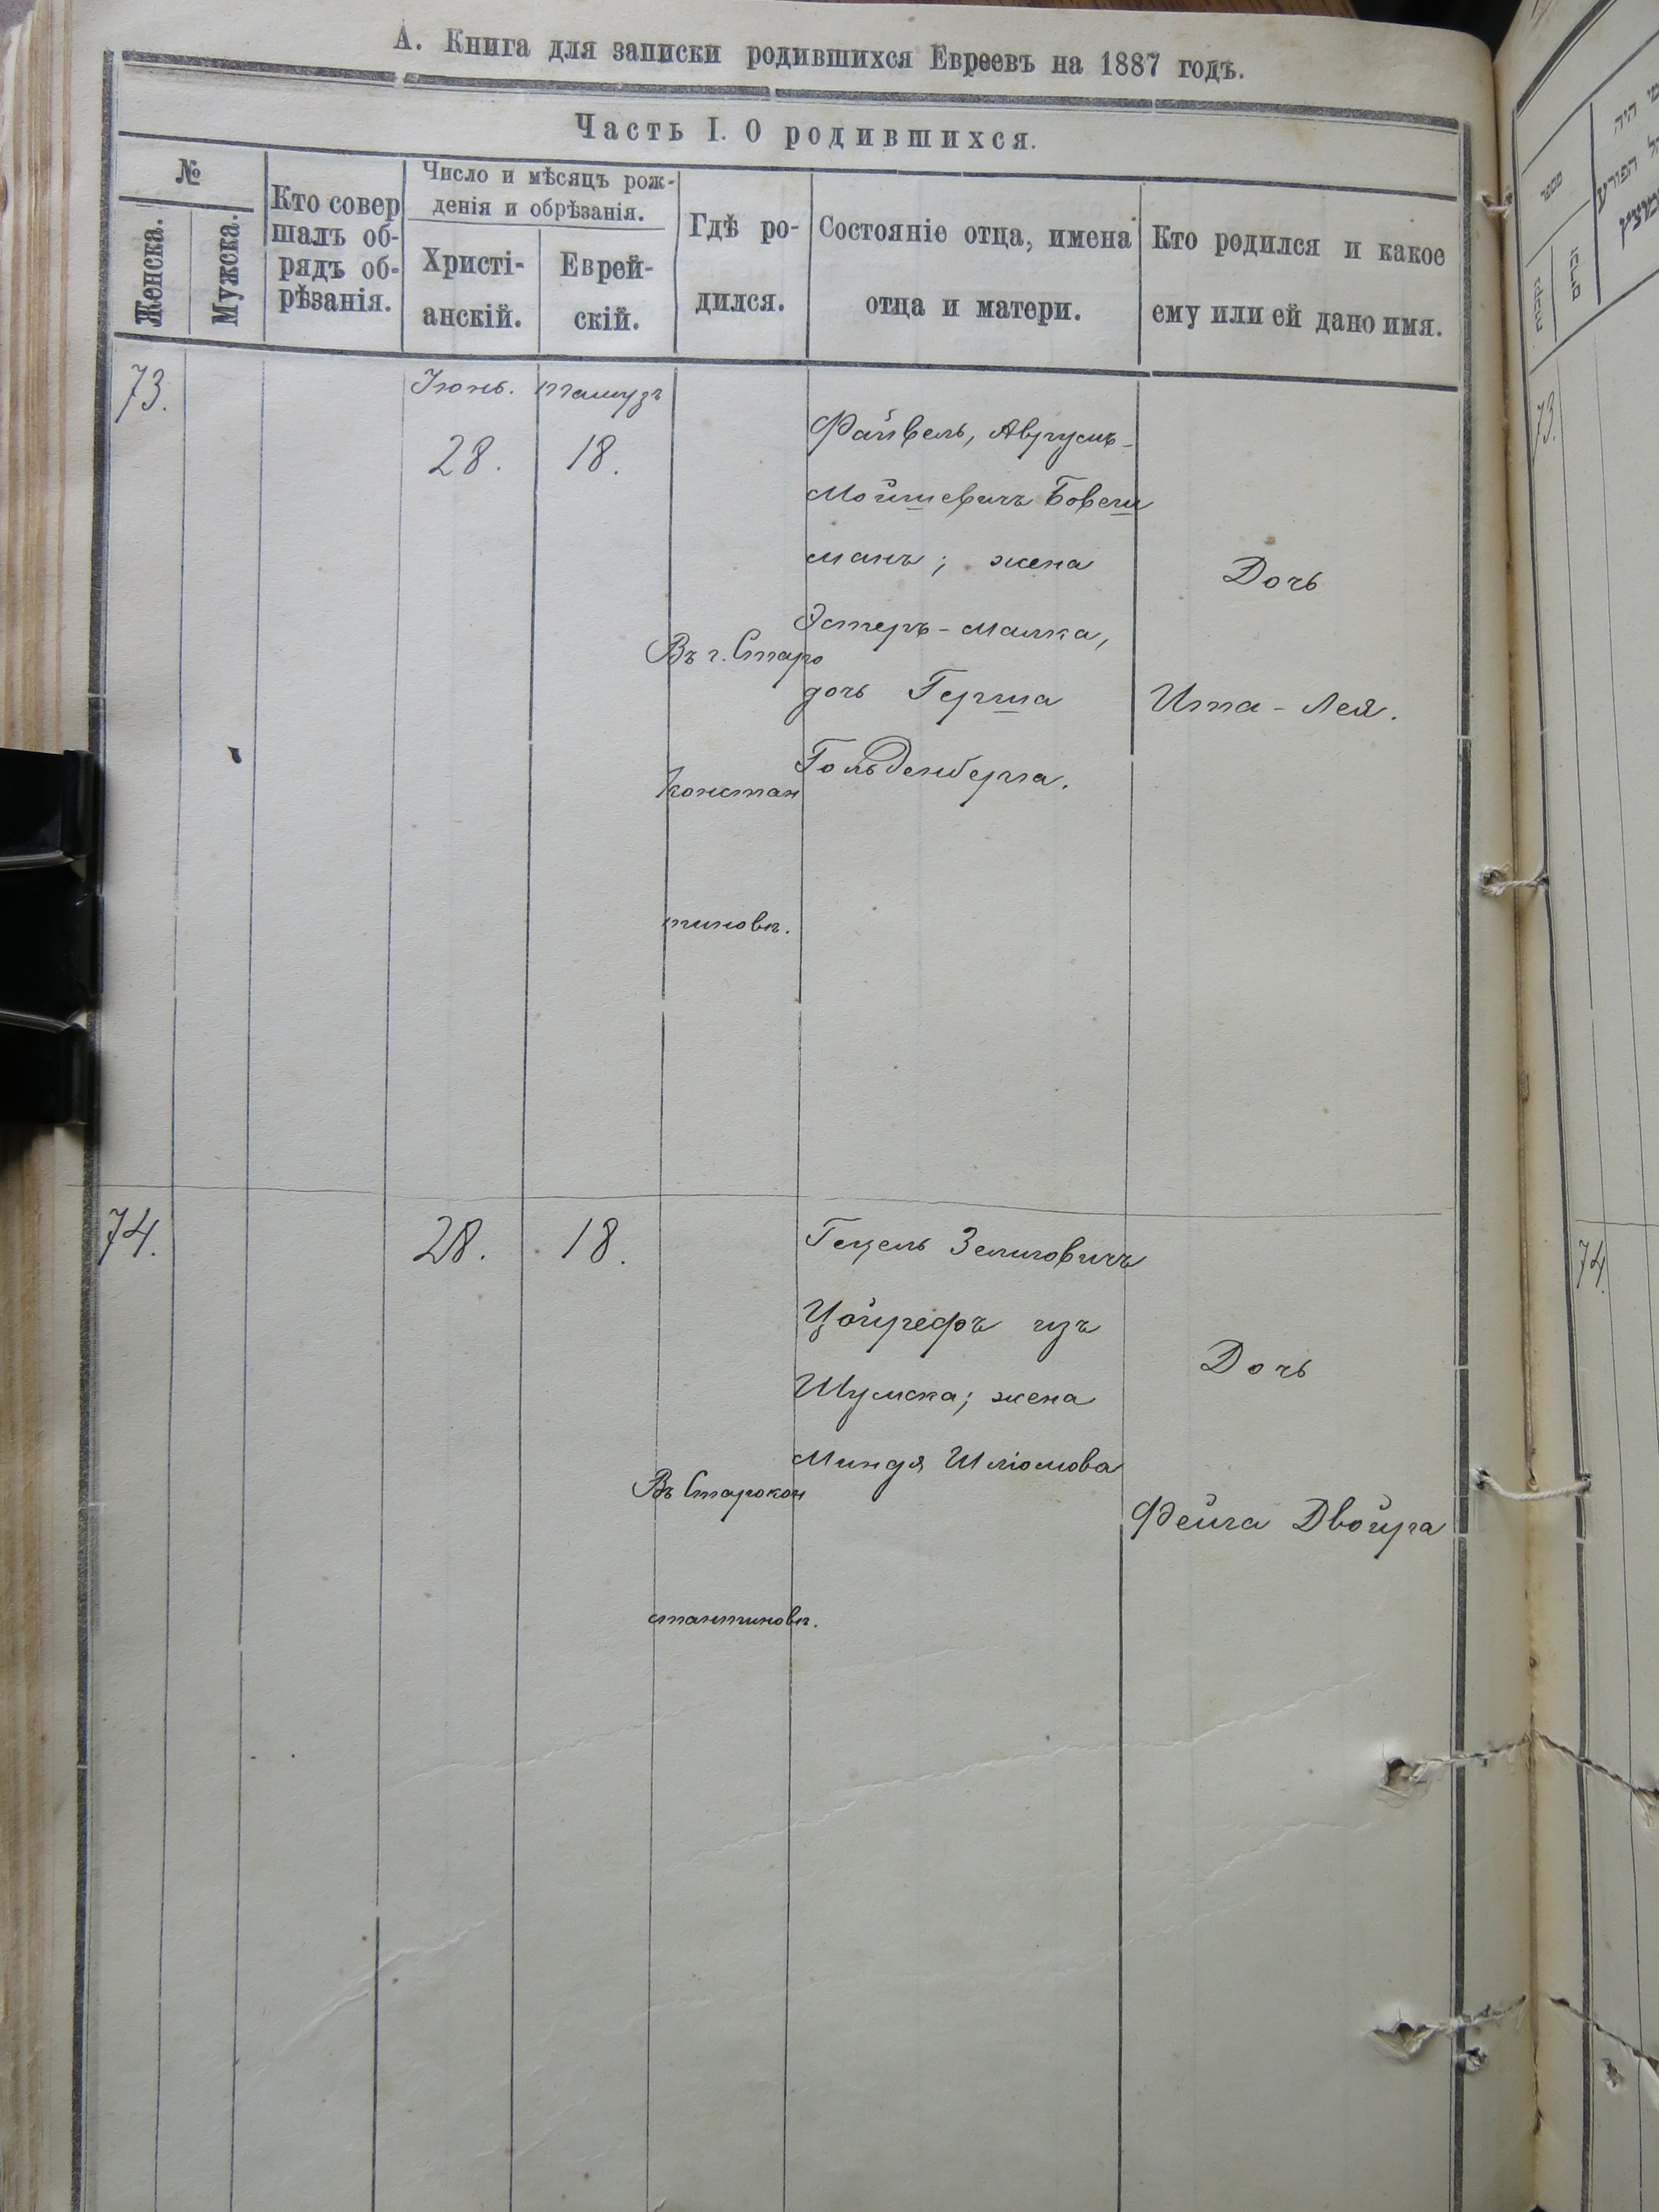 А. Книга для записки родившихся Евреевъ на 1887 годъ.
Часть I. О родившихся.
№
Женска.
Мужска.
Кто совер
шалъ об-
рядъ об-
рѣзанія.
Число и мѣсяцъ рож-
денія и обрѣзанія.
Христі-
анскій.
Еврей-
скій.
Гдѣ ро-
дился.
Состояніе отца, имена
отца и матери.
Кто родился и какое
ему или ей дано имя.
73.
Іюнь.
28.
тамузъ
18.
Въ г. Старо
констан
тиновѣ.
Файвель, Аврумъ-
Мойшевичъ Бовеш
манъ; жена
Эстеръ-Малка,
дочь Герша
Гольденберга.
Дочь
Ита-Лея.
74.
28.
18.
Въ Старокон
стантиновѣ.
Гецель Зелиговичъ
Цойрефъ изъ
Шумска; жена
Миндя Шліомова
Дочь
Фейга Двойра
מספר
73.
74.